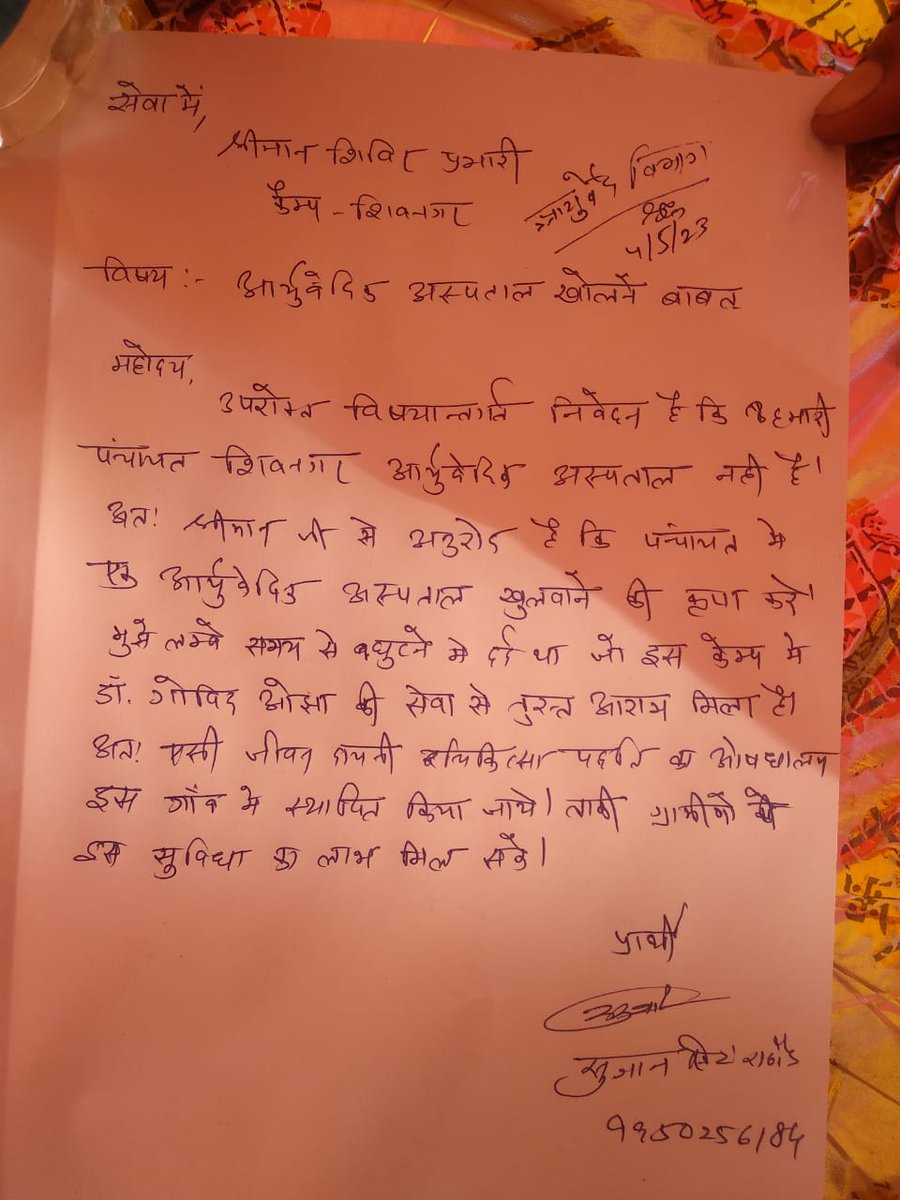 सेवा में,
श्रीमान शिविर प्रभारी
कैम्प - शिवनगर
आयुर्वेद विभाग
4/5/23
विषय :- आर्युवेदिक अस्पताल खोलने बाबत्
महोदय,
उपरोक्त विषयान्तर्गत निवेदन है कि हमारी
पंचायत शिवनगर आर्युवेदिक अस्पताल नही है।
अत: श्रीमान जी से अनुरोद है कि पंचायत मे
एक आर्युवेदिक अस्पताल खुलवाने की कृपा करे।
मुझे लम्बे समय से घुटने मे दर्द था जो इस केम्प मे
डॉ. गोविंद ओझा की सेवा से तुरन्त आराम मिला है।
अत: एसी जीवन दायनी चिकित्सा पद्दति का ओषधालय
इस गाँव मे स्थापित किया जाये। ताकी ग्रामीणो को
इस सुविधा का लाभ मिल सके।
प्रार्थी
सुजान सिंह राठौड़